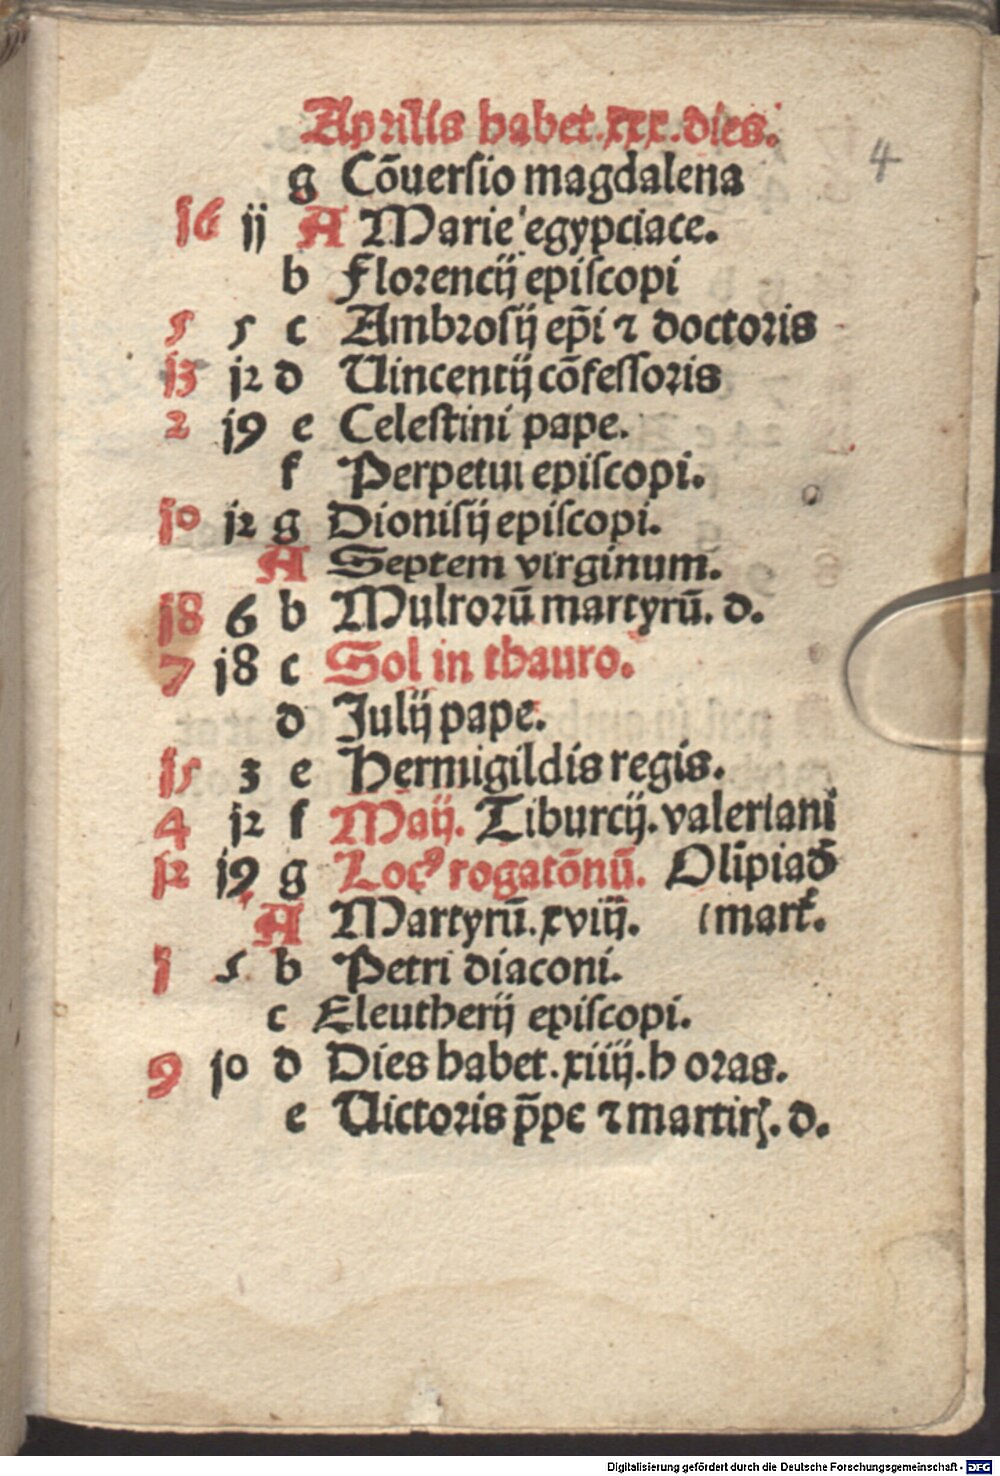 Aprilis habet .xxx. dies.
4
g Cōuersio magdalena
16 ij A Marie egypciace.
b Florencij episcopi
5 5 c Ambrosij ep̄i ⁊ doctoris
13 12 d Uincentij cōfessoris
2 19 e Celestini pape.
f Perpetui episcopi.
10 12 g Dionisij episcopi.
A Septem virginum.
18 6 b Multorū martyrū. d.
7 18 c Sol in thauro.
d Julij pape.
15 3 e Hermigildis regis.
4 12 f Maij. Tiburcij. valeriani
12 19 g Locꝰ rogatōnū. Olīpiad
A Martyrū. xviij. mart.
1 5 b Petri diaconi.
c Eleutherij episcopi.
9 10 d Dies habet. xiiij. h oras.
e Uictoris p̄pe ⁊ martirꝭ. d.
Digitalisierung gefördert durch die Deutsche Forschungsgemeinschaft - DFG